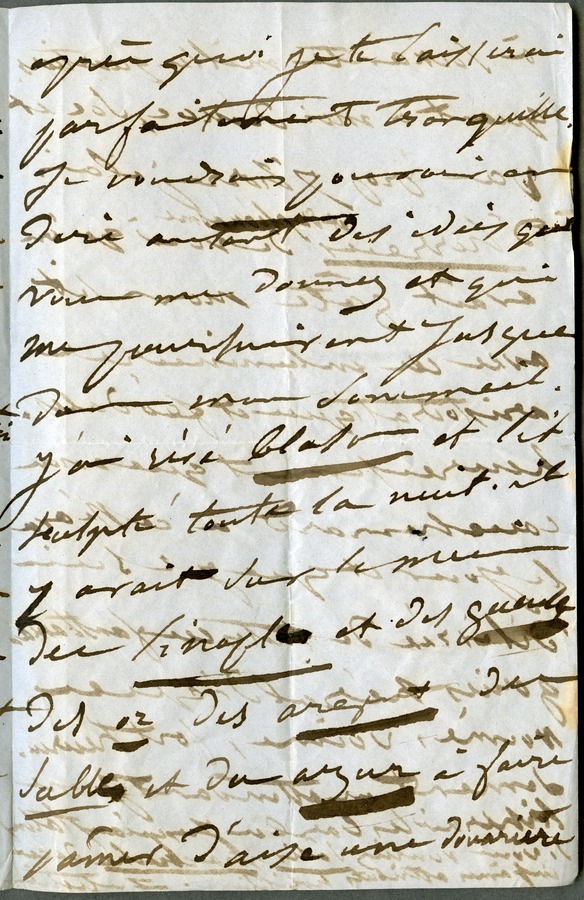 après quoi je te laisserai
parfaitement tranquille.
Je voudrais pouvoir en
dire autant des idées que
vous me donnez et qui
me poursuivent jusque
dans mon sommeil.
j'ai rêvé blason et lit
sculpté toute la nuit. il
y avait sur le mien
des sinoples et des gueules
des or des argent des
sables et du azur à faire
pâmer d'aise une douairière